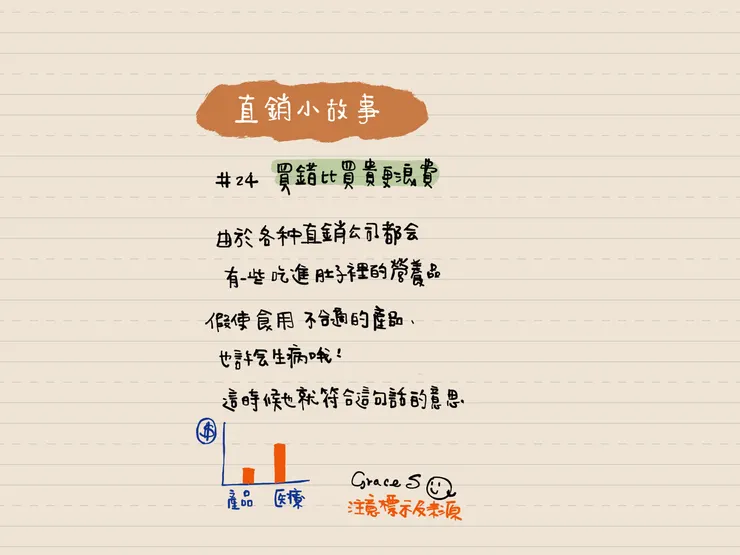 直銷小故事
#24 買錯比買貴更浪費
由於各种直銷公司都会
有一些吃進肚子裡的營養品
假使食用不合適的產品、
也許会生病哦!
這時候也就符合這句話的意思
$
產品 医療
Grace S
注意標示及來源